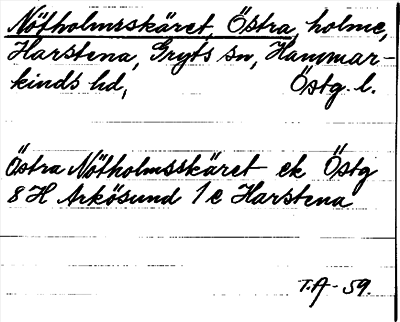 Nötholmsskäret, Östra, holme,
Harstena, Gryts sn, Hammar-
kinds hd, Östg. l.
Östra Nötholmsskäret ek Östg
8 H Arkösund 1 e Harstena
T.A. -59.